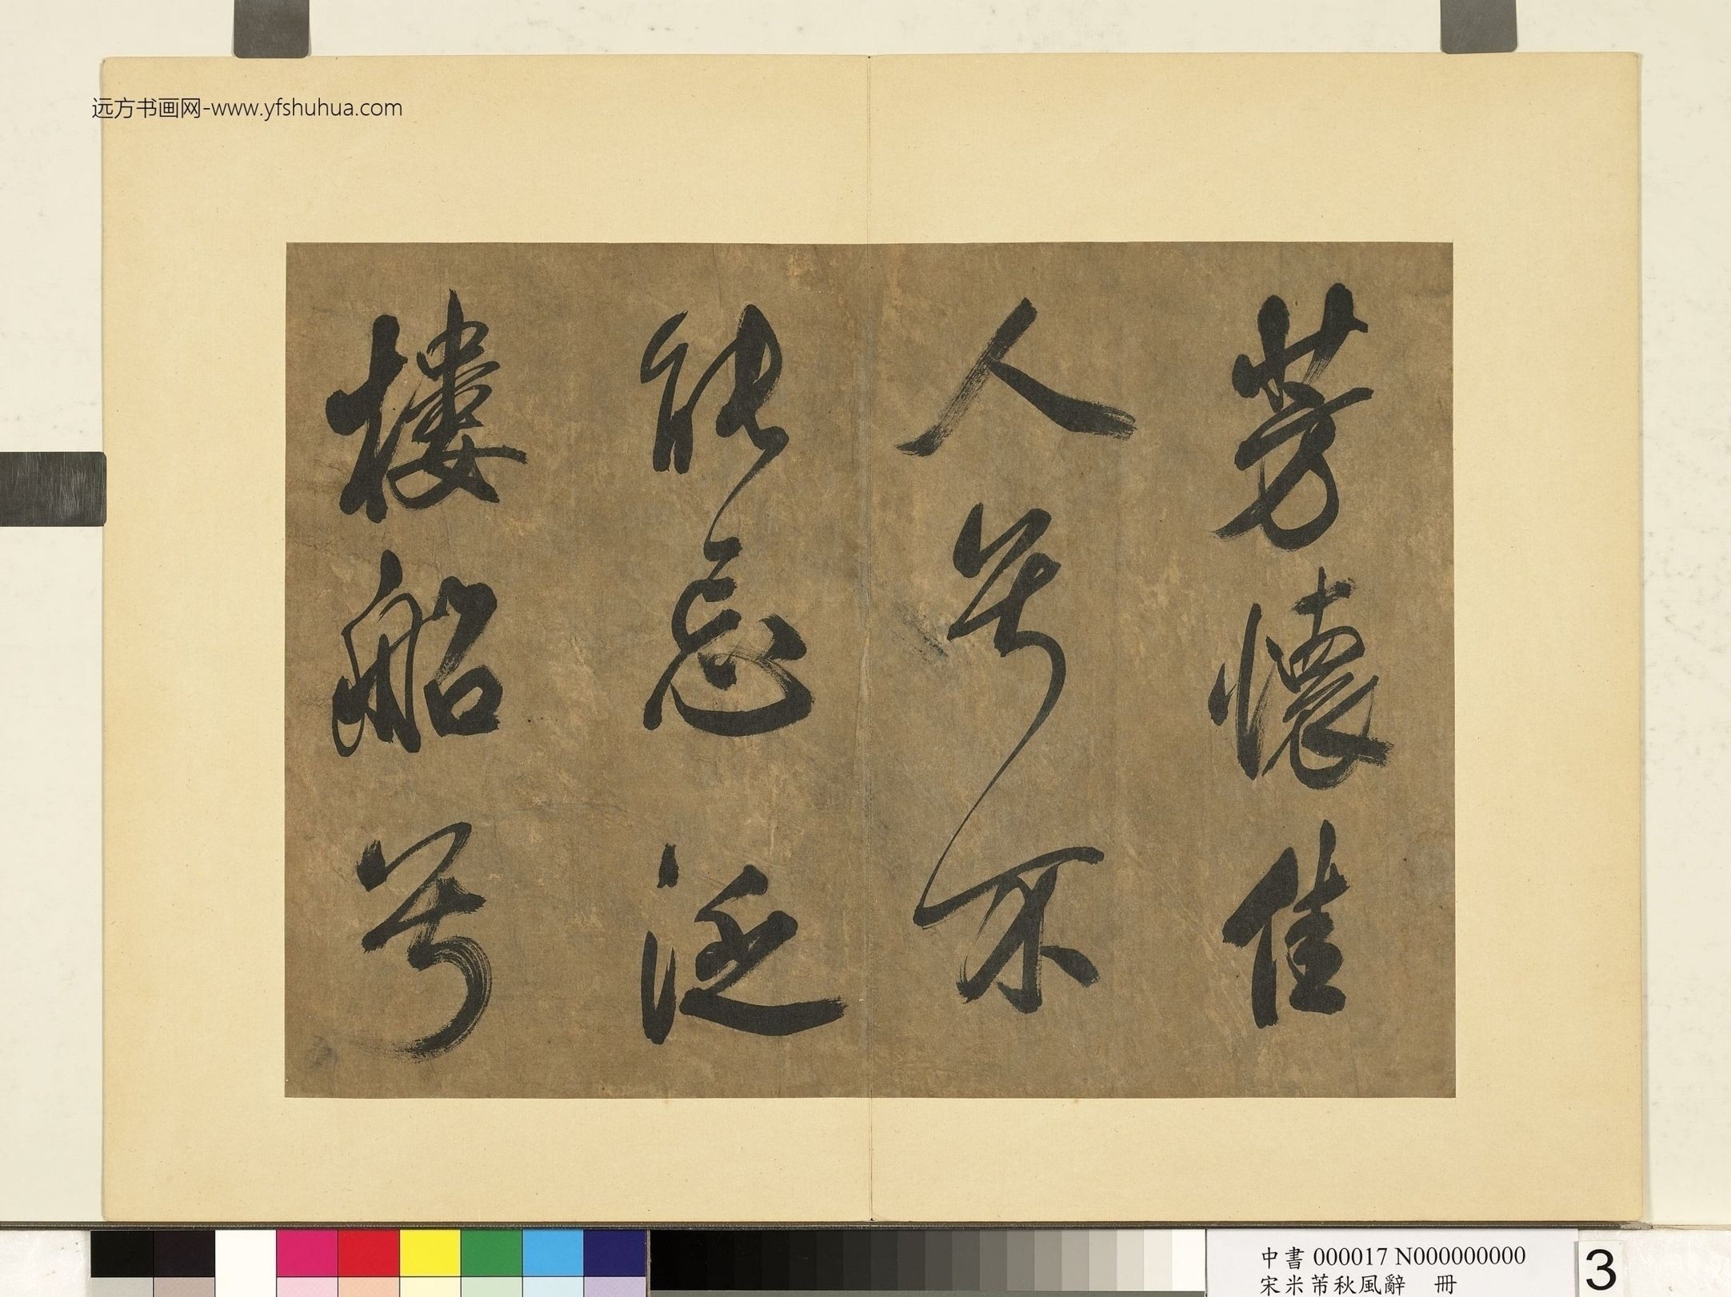 远方书画网-www.yfshuhua.com
芳懷佳
人兮不
能忘泛
樓船兮
中書 000017 N000000000
宋米芾秋風辭 冊
3